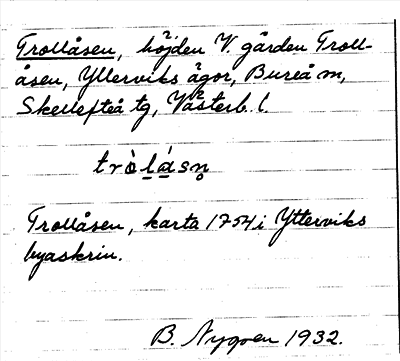 Trollåsen, höjden V. gården Troll-
åsen, Ytterviks ägor, Bureå sn,
Skellefteå tg, Västerb. l.
tròlásn̥
Trollåsen, karta 1754 i Ytterviks
byaskrin.
B. Nygren 1932.